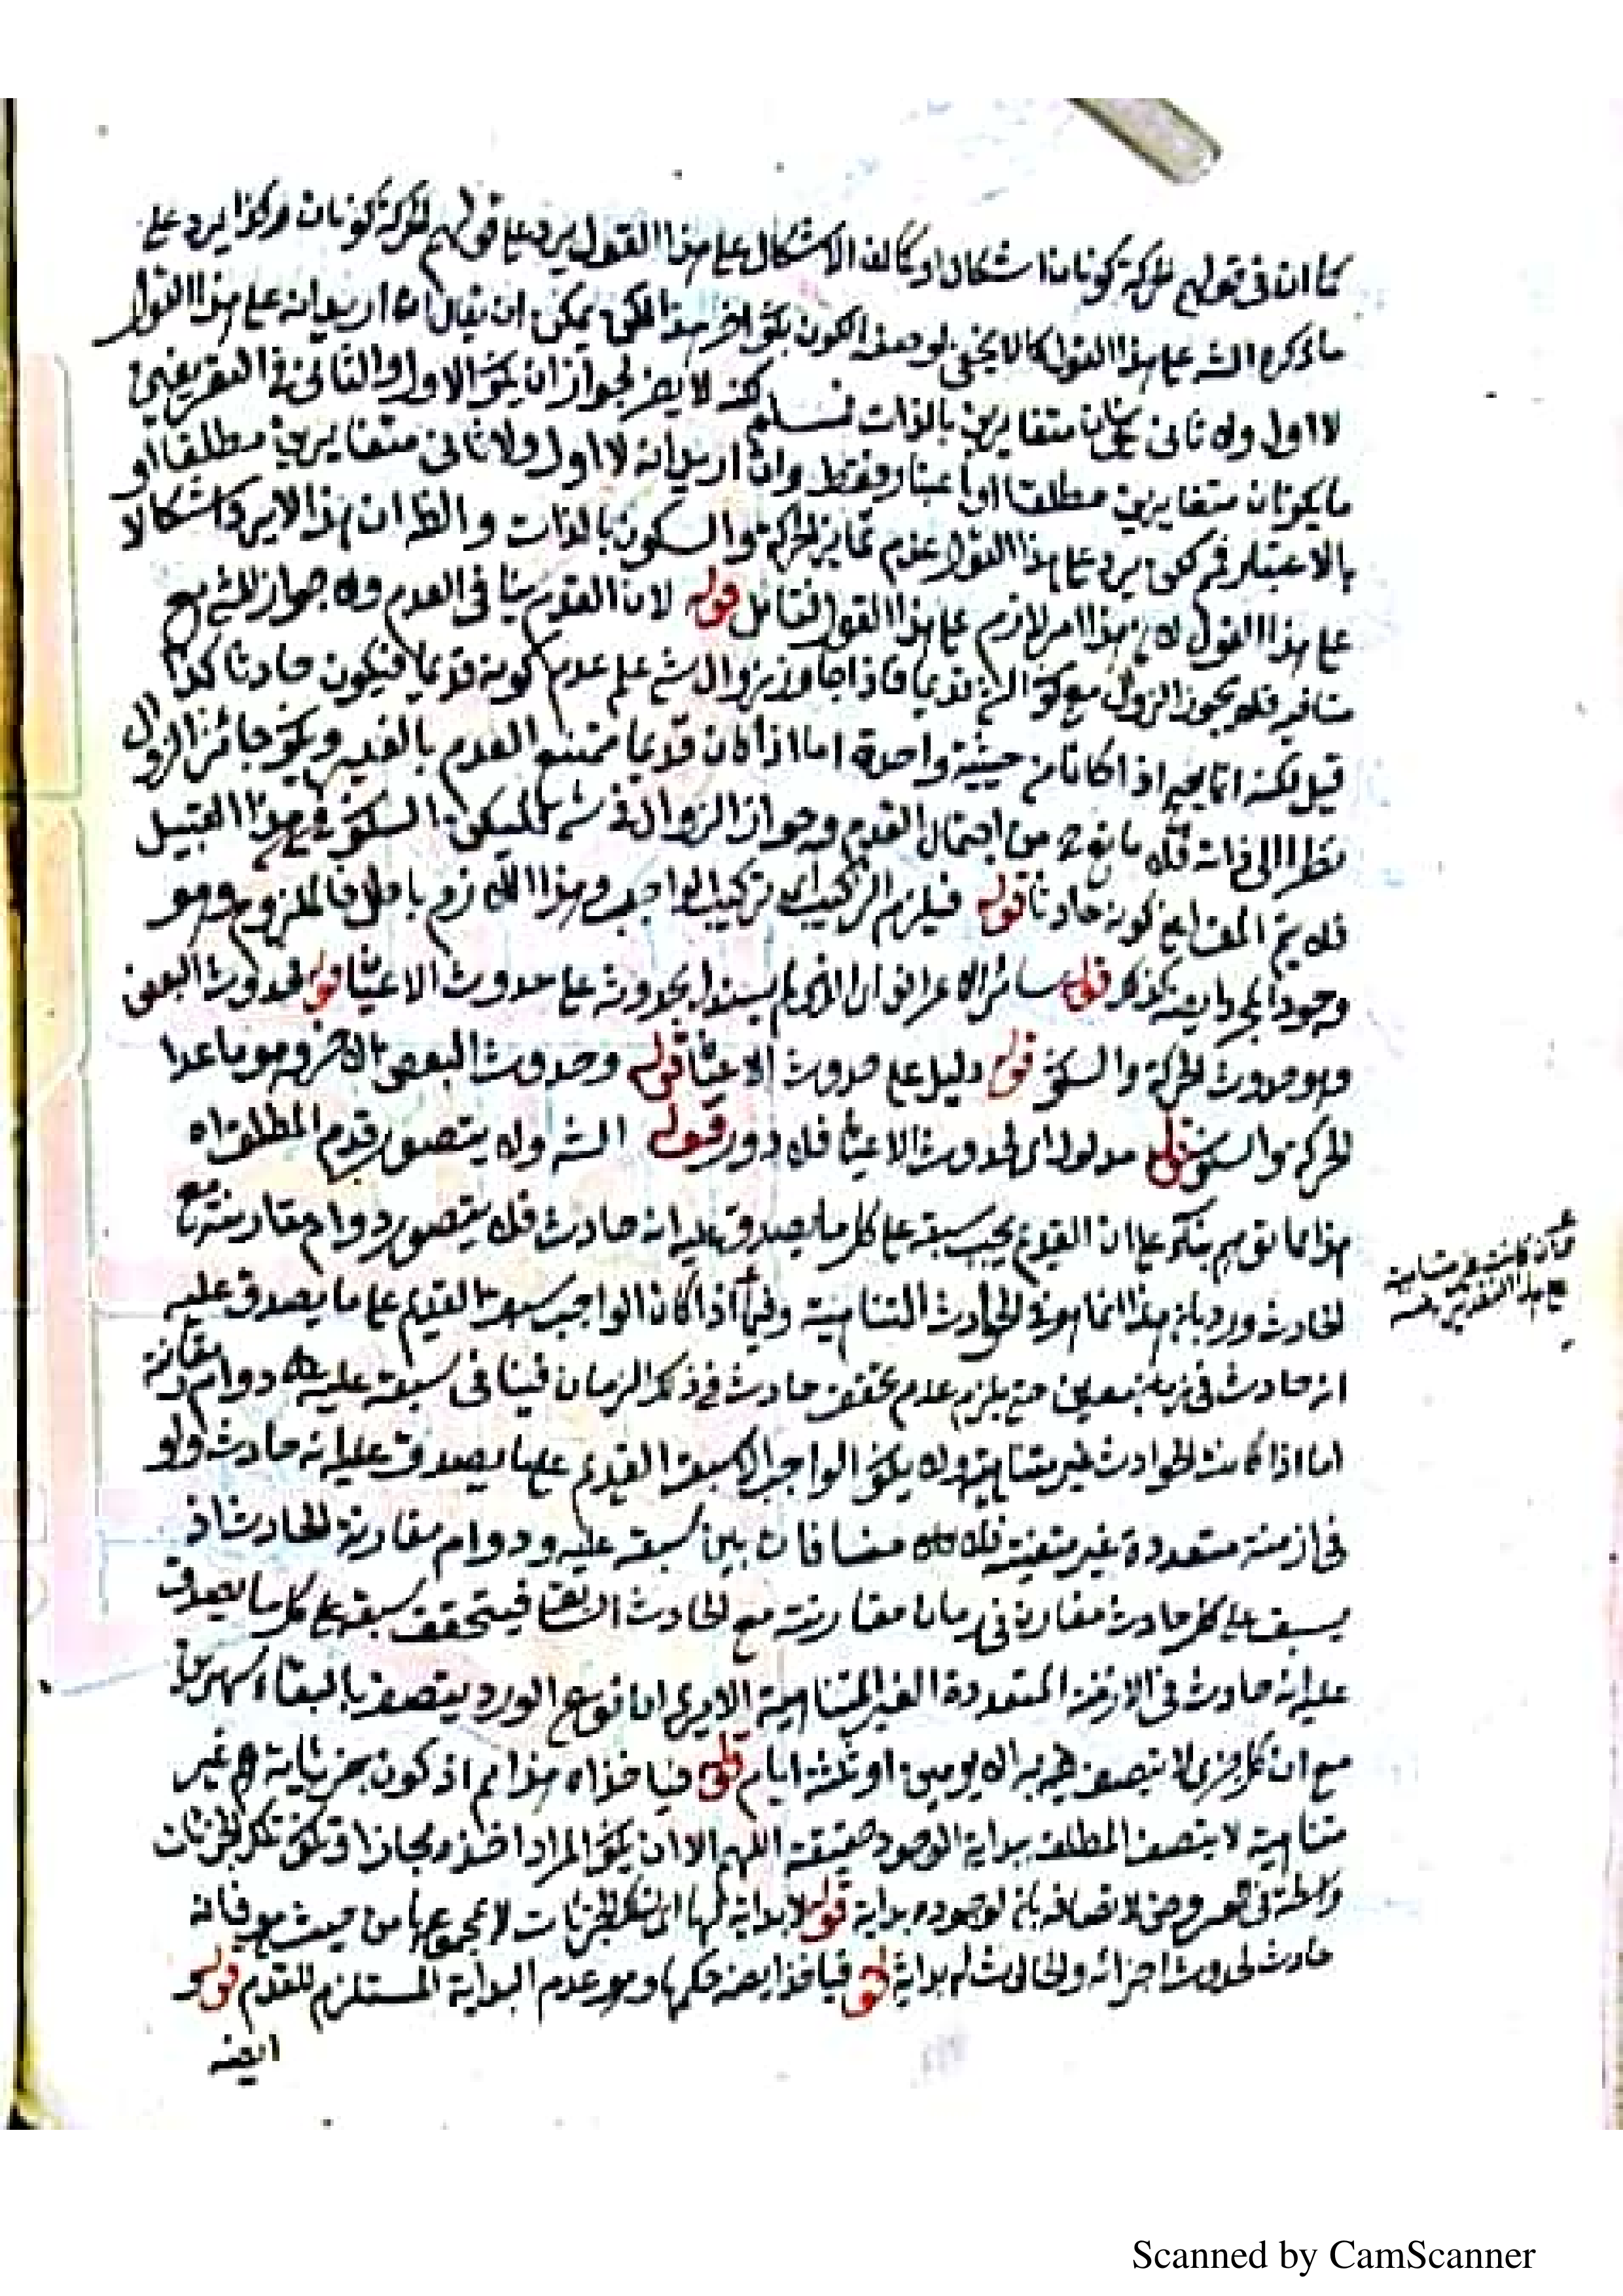 كما ان فى قولهم الحركة كونان اشكال او كما ان الاشكال على هذا القول يرد على قولهم الحركة كونان وكذا يرد على
ما ذكره الشـ على هذا القول كما لا يخفى لو صفة الكون يكو اخر هذا لكن يمكن ان يقال ان اريد انه على هذا القول
لا اول ولا ثانى متغايرين بالذات فمسلم لكنه لا يضر لجواز ان يكو الاول والثانى فى التعريفين
ما يكونان متغايرين مطلقا او باعتبار فقط وان اريد انه لا اول ولا ثانى متغايرين مطلقا او
بالاعتبار فم لكن يرد على هذا القول عدم تمايز الحركة والسكون بالذات والظ ان هذا لا يرد اشكالا
على هذا القول لان هذا امر لازم على هذا القول تأمل قوله لان القدم ينافى العدم ولا جواز الشئ مع
منافيه فلا يجوز الزوال مع كو الشئ قديما فاذا جاوز زوال شئ علم عدم كونه قديما فيكون حادثا كذا
قيل لكنه انما يجرى اذا كانا من حيثية واحدة اما اذا كان قديما ممتنع العدم بالغير ويكو جائز الزوال
نظرا الى ذاته فلا مانع من اجتماع القدم وجواز الزوال فى شئ فليكن السكو من هذا القبيل
فلا يتم المق اعنى كونه حادثا قوله فيلزم التركيب اى تركيب الواجب وهذا اللازم باطل فالملزوم وهو
وجود المجرد ايضا كذلك قوله سائر الاعراض اى التى لم يستدل بحدوثه على حدوث الاعيان قوله فحدوث البعض
وهو حدوث الحركة والسكو قوله دليل على حدوث الاعيان قوله وحدوث البعض الاخر وهو ما عدا
الحركة والسكو قوله مدلول اى لحدوث الاعيان فلا دور قوله الشـ ولا يتصور قدم المطلق اه
هذا ما توهم بناء على ان القديم يجب سبقه على كل ما يصدق عليه انه حادث فلا يتصور دوام مقارنته مع
الحادث ورد بان هذا انما هو فى الحوادث المتناهية وفيما اذا كان الواجب سبق القديم على ما يصدق عليه
انه حادث فى زمان معين حتى يلزم عدم تحقق حادث فى ذلك الزمان فينافى سبقه عليه دوام مقارنة
اما اذا كانت الحوادث غير متناهية ولا يكو الواجب الا سبق القديم على ما يصدق عليه انه حادث ولو
فى ازمنة متعددة غير متعينة فلا منافات بين سبقه عليه ودوام مقارنة الحادث اذ
يسبق على كل حادث مقارن فى زمان مقارنة مع الحادث السابق فيتحقق سبقه على كل ما يصدق
عليه انه حادث فى الازمنة المتعددة الغير المتناهية الا يرى ان نوع الورد يتصف بالبقاء شهرين
مع ان كل فرد لا يتصف به الا يومين او ثلثة ايام قوله فياخذ اه هذا مم اذ كون جزئياته غير
متناهية لا يتصف المطلق ببداية الوجود حقيقة اللهم الا ان يكو المراد اخذه مجازا وتكو تلك الجزئيات
واسطة فى عروض لاتصافه بان لوجوده بداية قوله لا بداية لها اى لتلك الجزئيات لا لمجموعها من حيث هو فانه
حادث لحدوث اجزائه والحادث له بداية قوله فياخذ ايضا حكمها وهو عدم البداية المستلزم للقدم قوله
ايضا
وان كانت غير متناهية